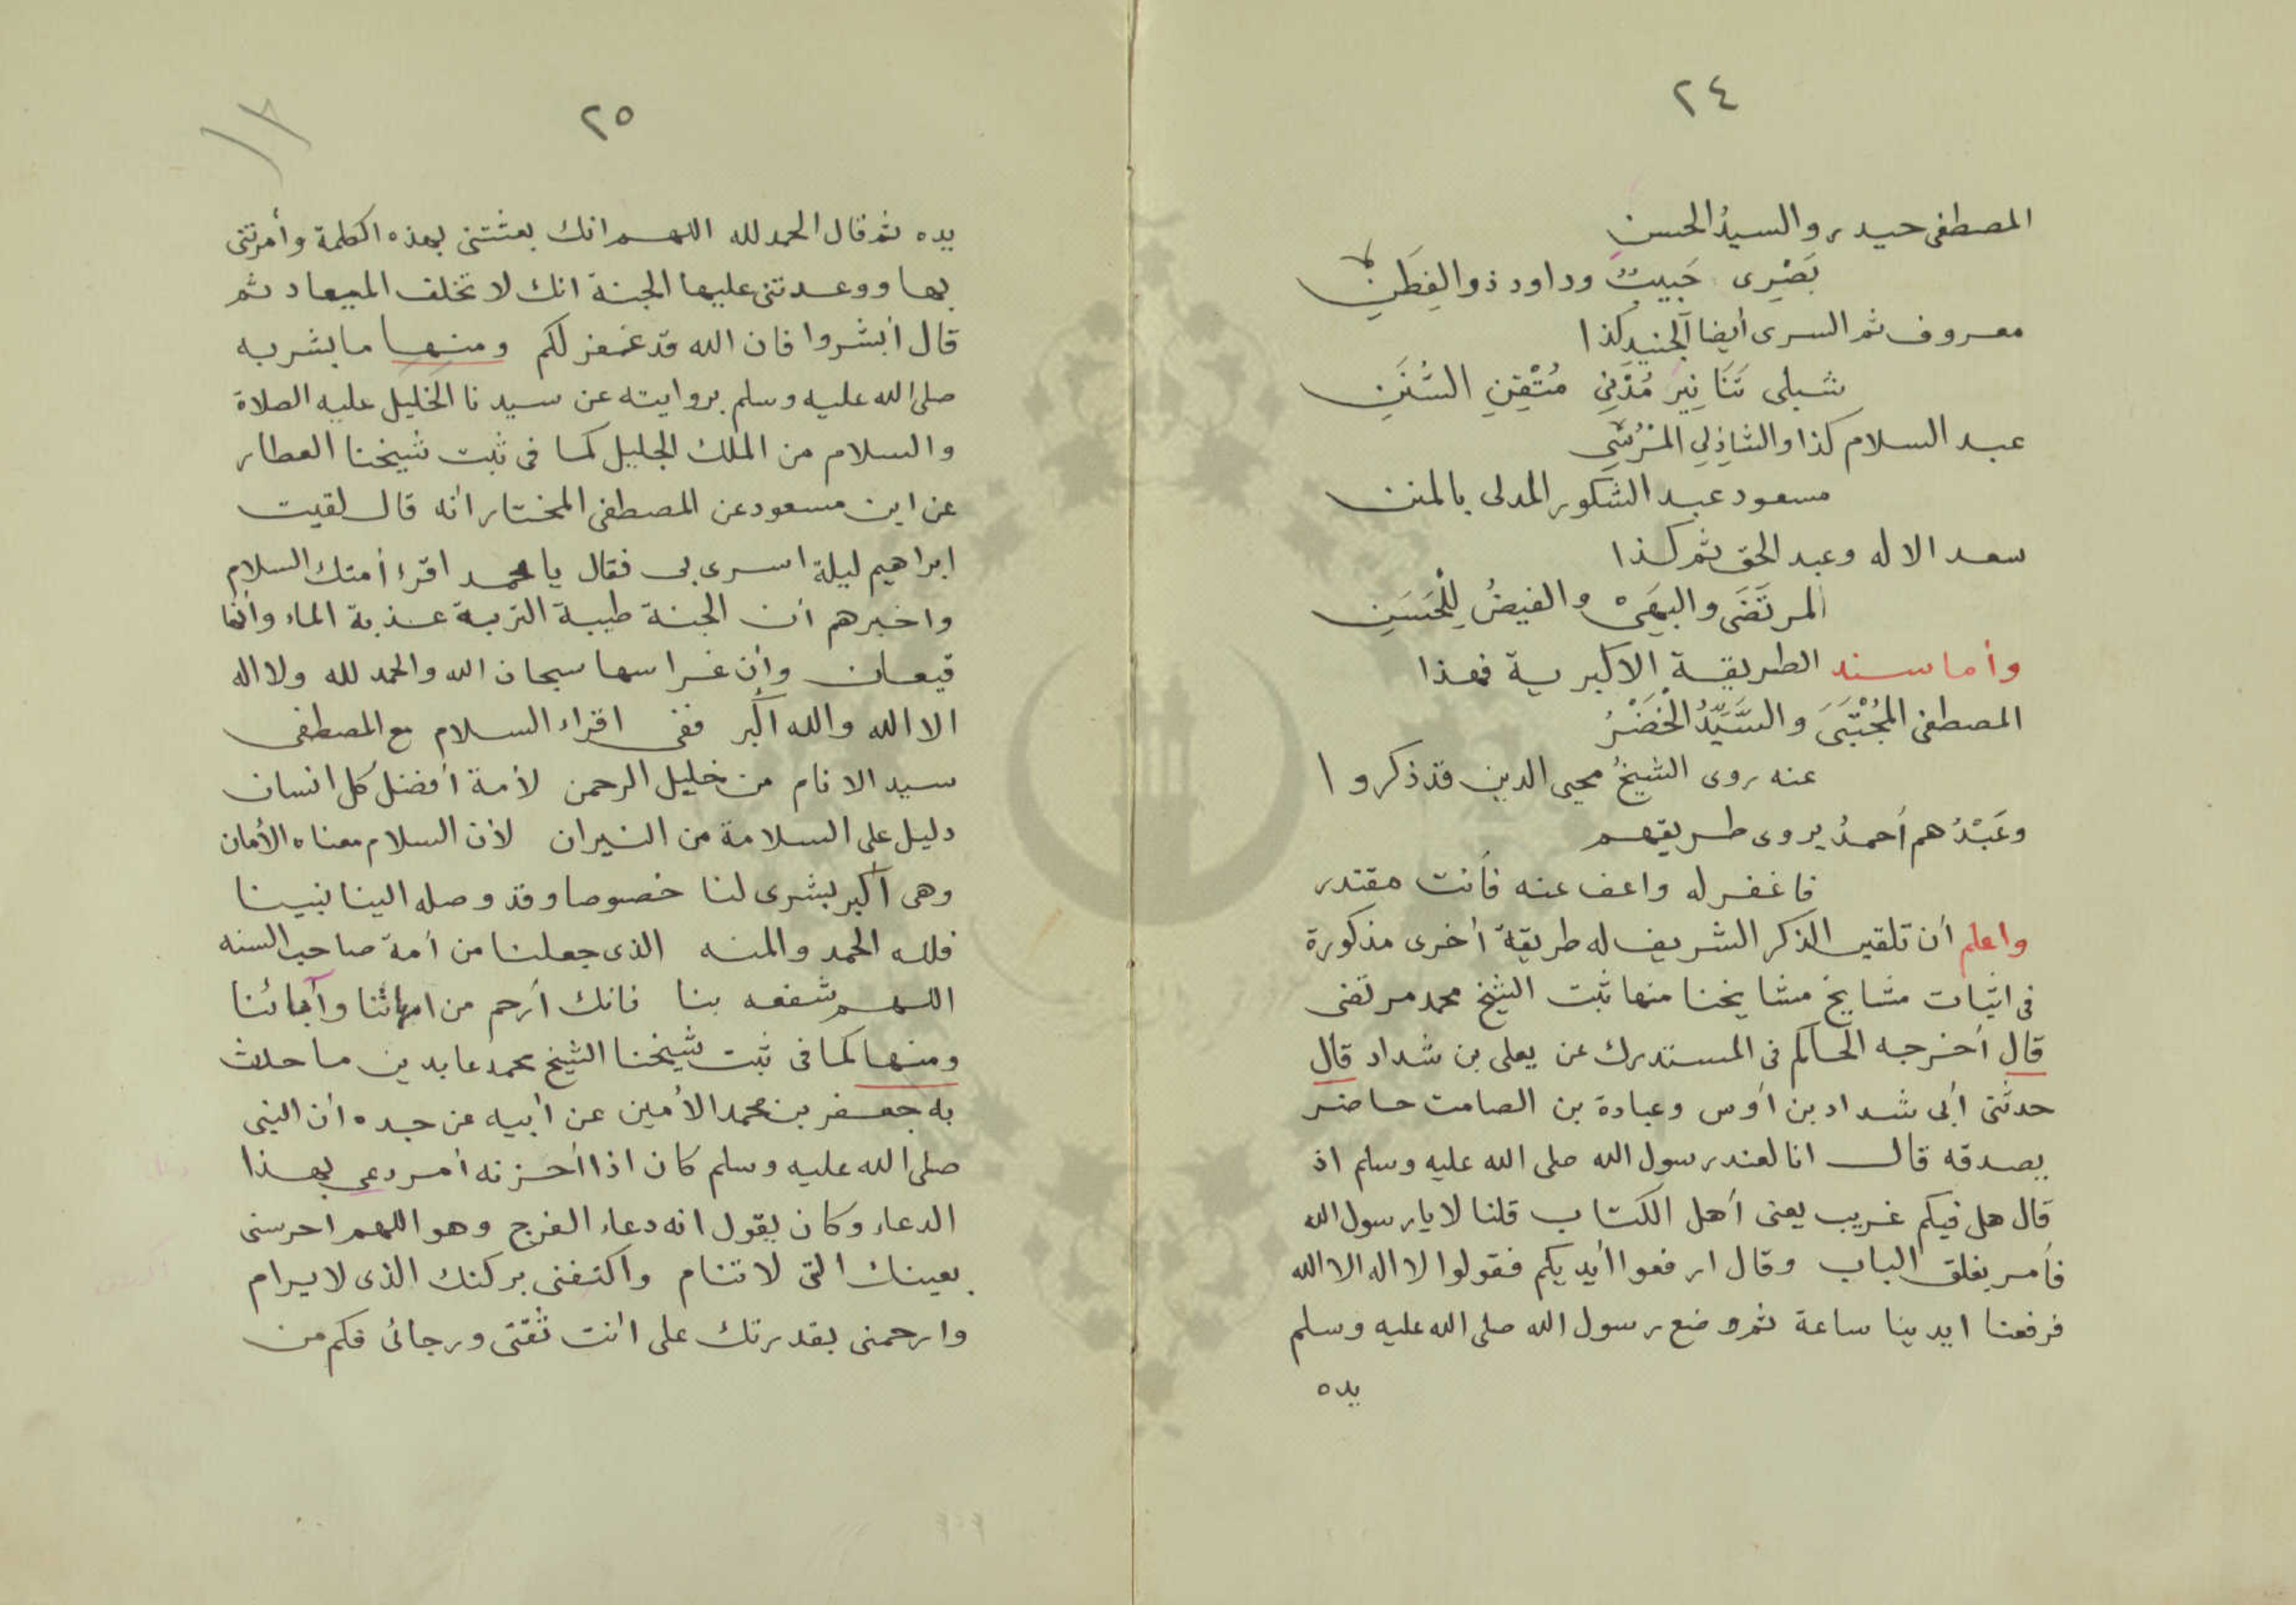 ٢٤
المصطفى حيدر والسيدُ الحسن
بَصْرِى حَبيبٌ وداود ذو الفِطَنِ
معروف ثم السرى أيضا الجنيد كذا
شبلى تَنَانِيرِ مُدْنِى مُتْقِنِ السُّنَنِ
عبد السلام كذا والشاذِلِى المُرْسِّى
مسعود عبد الشكور المدلى بالمنن
سعد الاله وعبد الحق ثم كذا
المرتَضَى والبهَىْ والفيضُ لِلْحَسَنِ
وأما سند الطريقة الاكبرية فهذا
المصطفى المُجْتَبَى والسَّيِّدُ الْخَضْرُ
عنه روى الشيخُ محيى الدين قد ذكروا
وعَبْدُهم أحمدُ يروى طريقهم
فاغفر له واعف عنه فأنت مقتدر
واعلم أن تلقين الذكر الشريف له طريقة أخرى مذكورة
فى اثبات مشايخ مشايخنا منها ثبت الشيخ محمد مرتضى
قال أخرجه الحاكم فى المستدرك عن يعلى بن شداد قال
حدثنى أبى شداد بن أوس وعبادة بن الصامت حاضر
يصدقه قال انا لعند رسول الله صلى الله عليه وسلم اذ
قال هل فيكم غريب يعنى أهل الكتاب قلنا لا يا رسول الله
فأمر بغلق الباب وقال ارفعوا أيديكم فقولوا لا اله الا الله
فرفعنا ايدينا ساعة ثم وضع رسول الله صلى الله عليه وسلم
يده
٢٥
١٣
يده ثم قال الحمد لله اللهم انك بعثتنى بهذه الكلمة وأمرتنى
بها ووعدتنى عليها الجنة انك لا تخلف الميعاد ثم
قال أبشروا فان الله قد غفر لكم ومنها ما بشر به
صلى الله عليه وسلم بروايته عن سيدنا الخليل عليه الصلاة
والسلام من الملك الجليل كما فى ثبت شيخنا العطار
عن ابن مسعود عن المصطفى المختار انه قال لقيت
ابراهيم ليلة اسرى بى فقال يا محمد اقرء أمتك السلام
واخبرهم أن الجنة طيبة التربة عذبة الماء وأنها
قيعان وأن غراسها سبحان الله والحمد لله ولا اله
الا الله والله أكبر ففى اقراء السلام مع المصطفى
سيد الانام من خليل الرحمن لأمة أفضل كل انسان
دليل على السلامة من النيران لأن السلام معناه الأمان
وهى أكبر بشرى لنا خصوصا وقد وصله الينا نبينا
فلله الحمد والمنه الذى جعلنا من أمة صاحب السنه
اللهم شفعه بنا فانك أرحم من امهاتنا وآبائنا
ومنها كما فى ثبت شيخنا الشيخ محمد عابدين ما حدث
به جعفر بن محمد الأمين عن أبيه عن جده أن النبى
صلى الله عليه وسلم كان اذا أحزنه أمر دعى بهذا
الدعاء وكان يقول انه دعاء الفرج وهو اللهم احرسنى
بعينك التى لا تنام واكنفنى بركنك الذى لا يرام
وارحمنى بقدرتك على انت ثقتى ورجائى فكم من